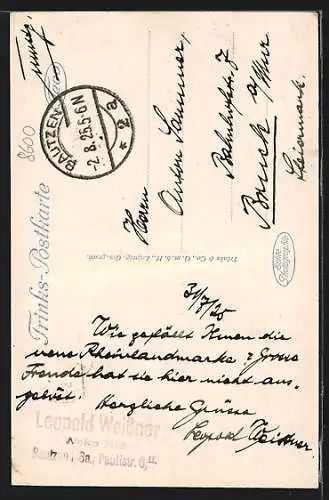 8600
BAUTZEN
-2.8.25.5-6N
* 2 a
Trinks-Postkarte
Trinks & Co., G. m. b. H., Leipzig. Ges. gesch.
Echte Photographie
Herrn
Anton
Bahnhofstr. 7
Bruck a/Mur
Steiermark.
31/7/25
Wie gefällt Ihnen die
neue Rheinlandmarke? Grosse
Freude hat sie hier nicht aus-
gelöst. Herzliche Grüsse
Leopold Weidner
Leopold Weidner
Bautzen i. Sa., Paulistr. 6,II.